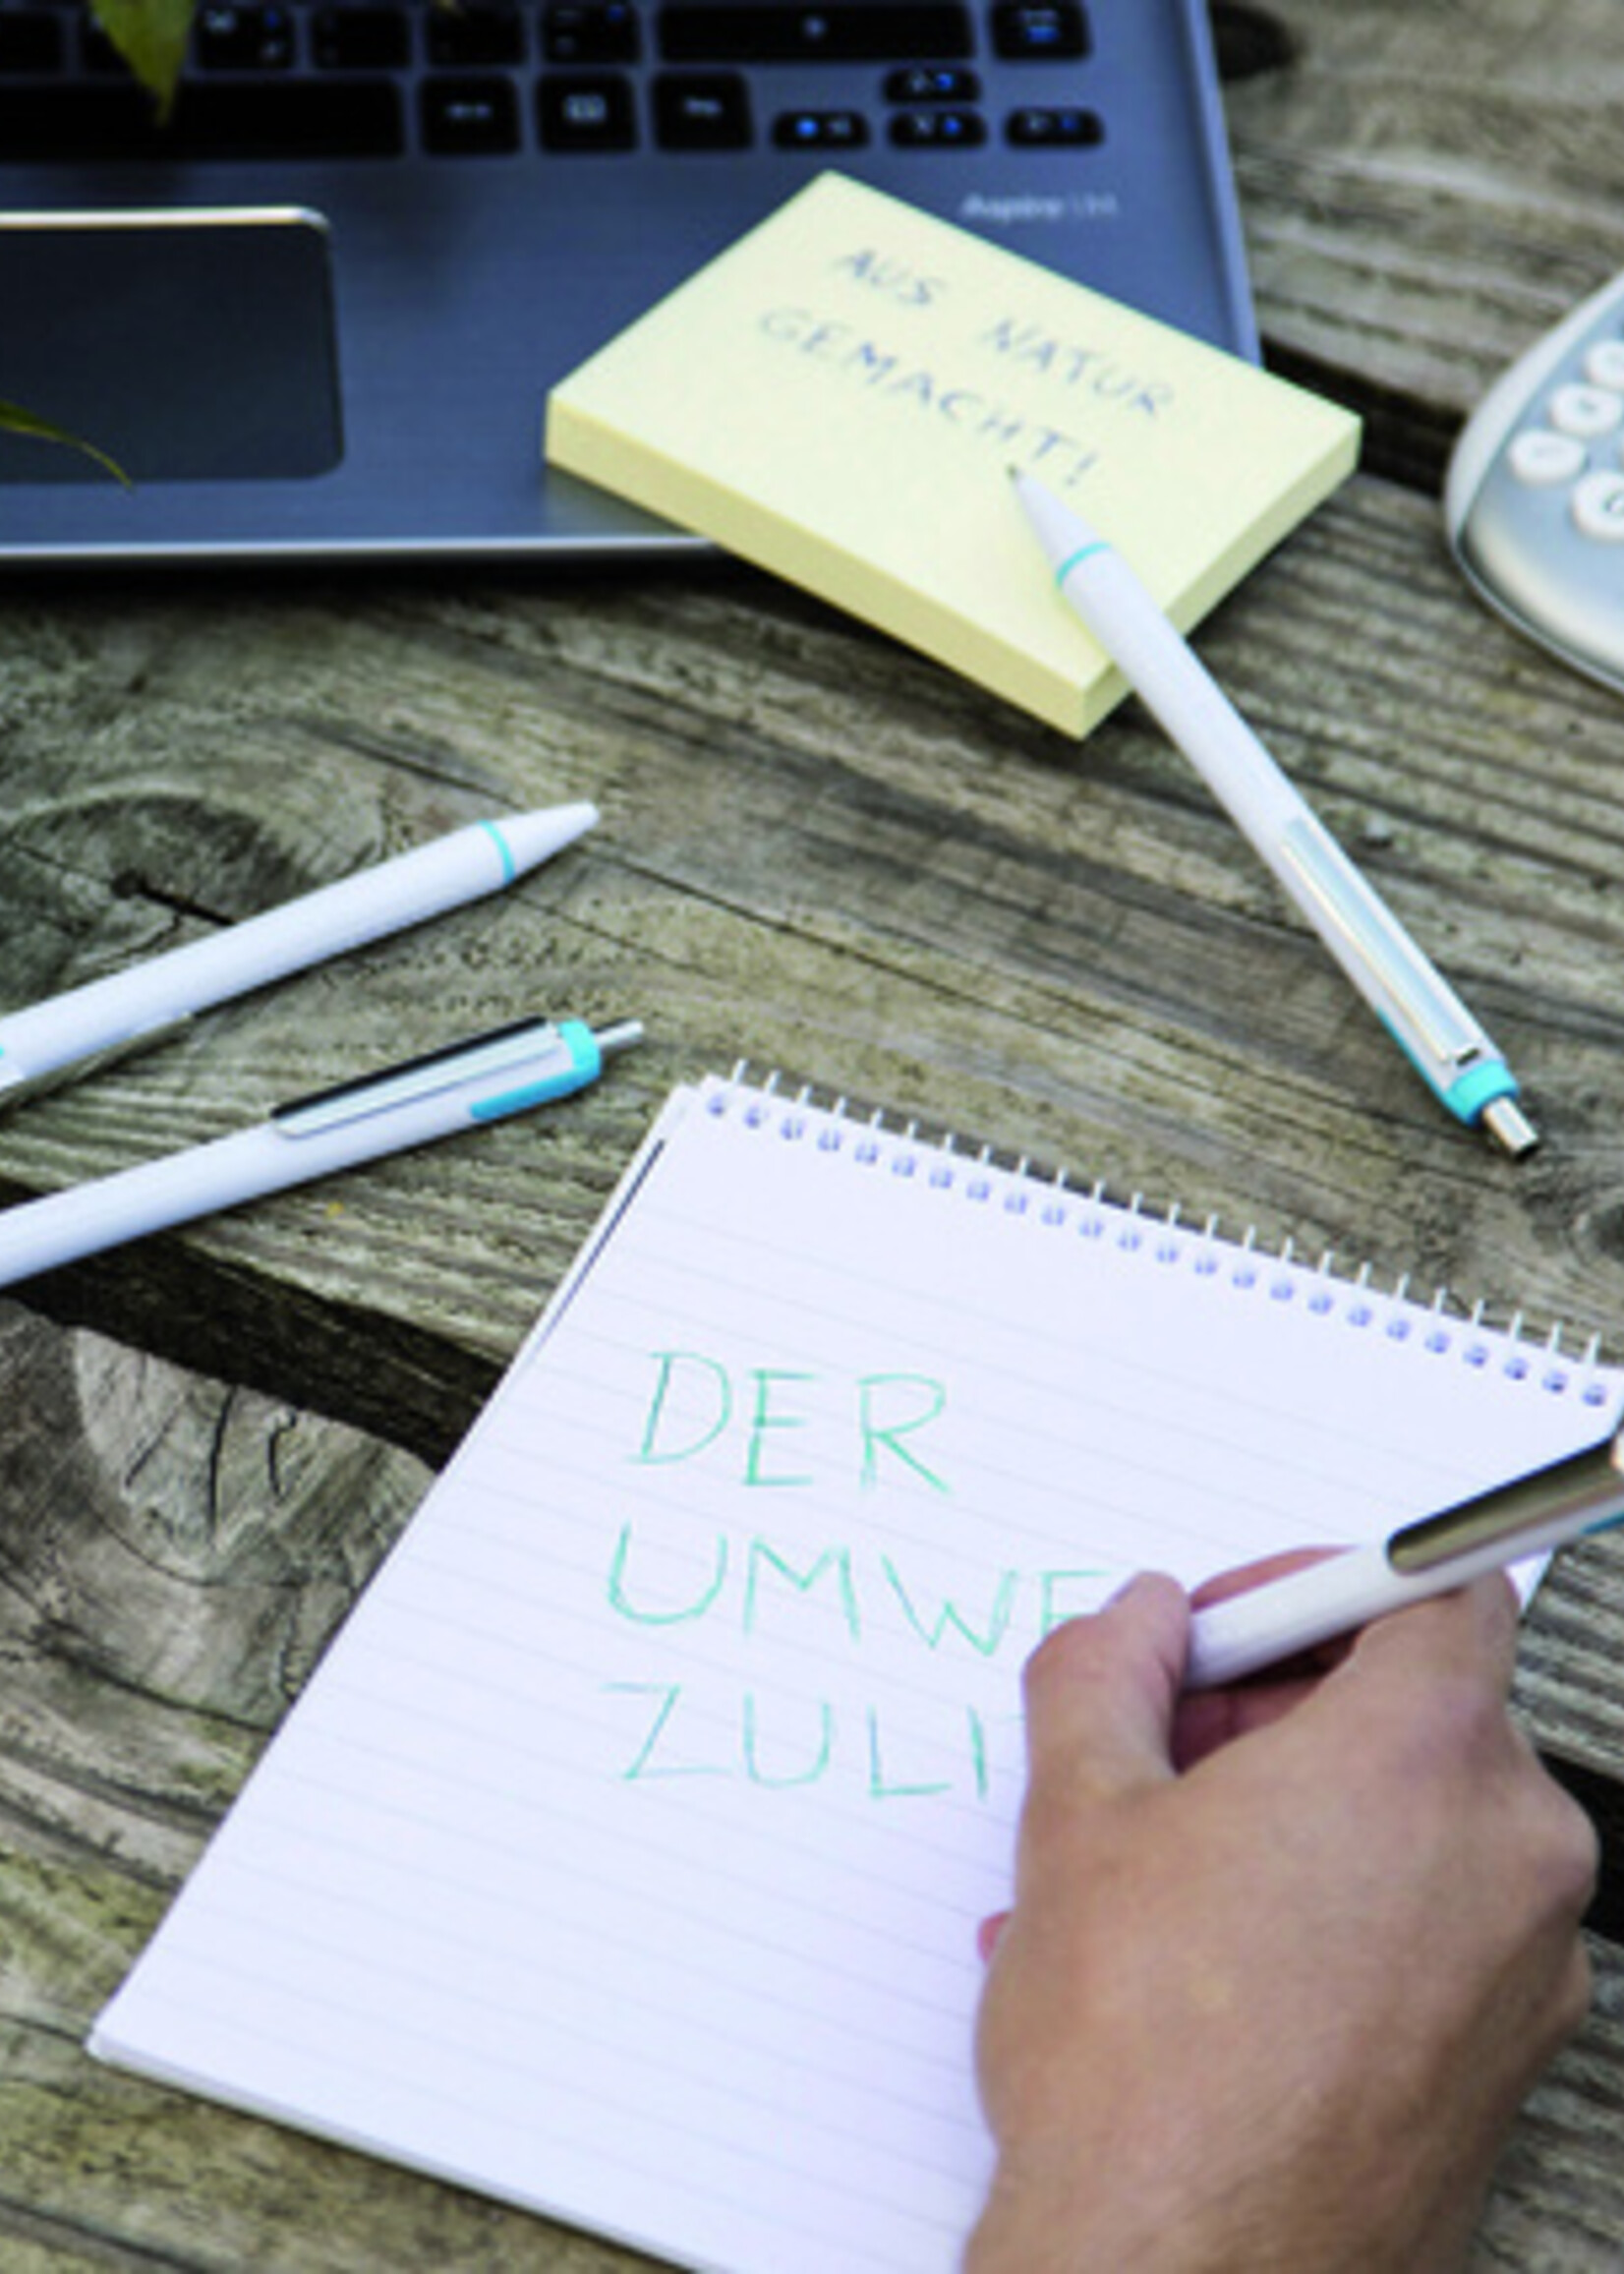 Aspire
AUS NATUR
GEMACHT!
DER
UMWE
ZULI